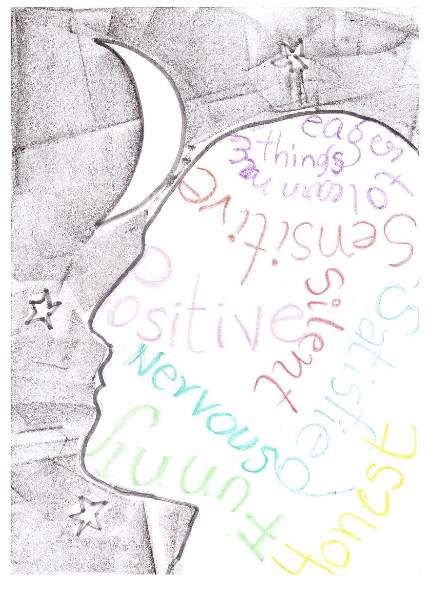 eager
to learn new
things
Sensitive
Positive
Silent
Satisfied
Nervous
funny
Honest